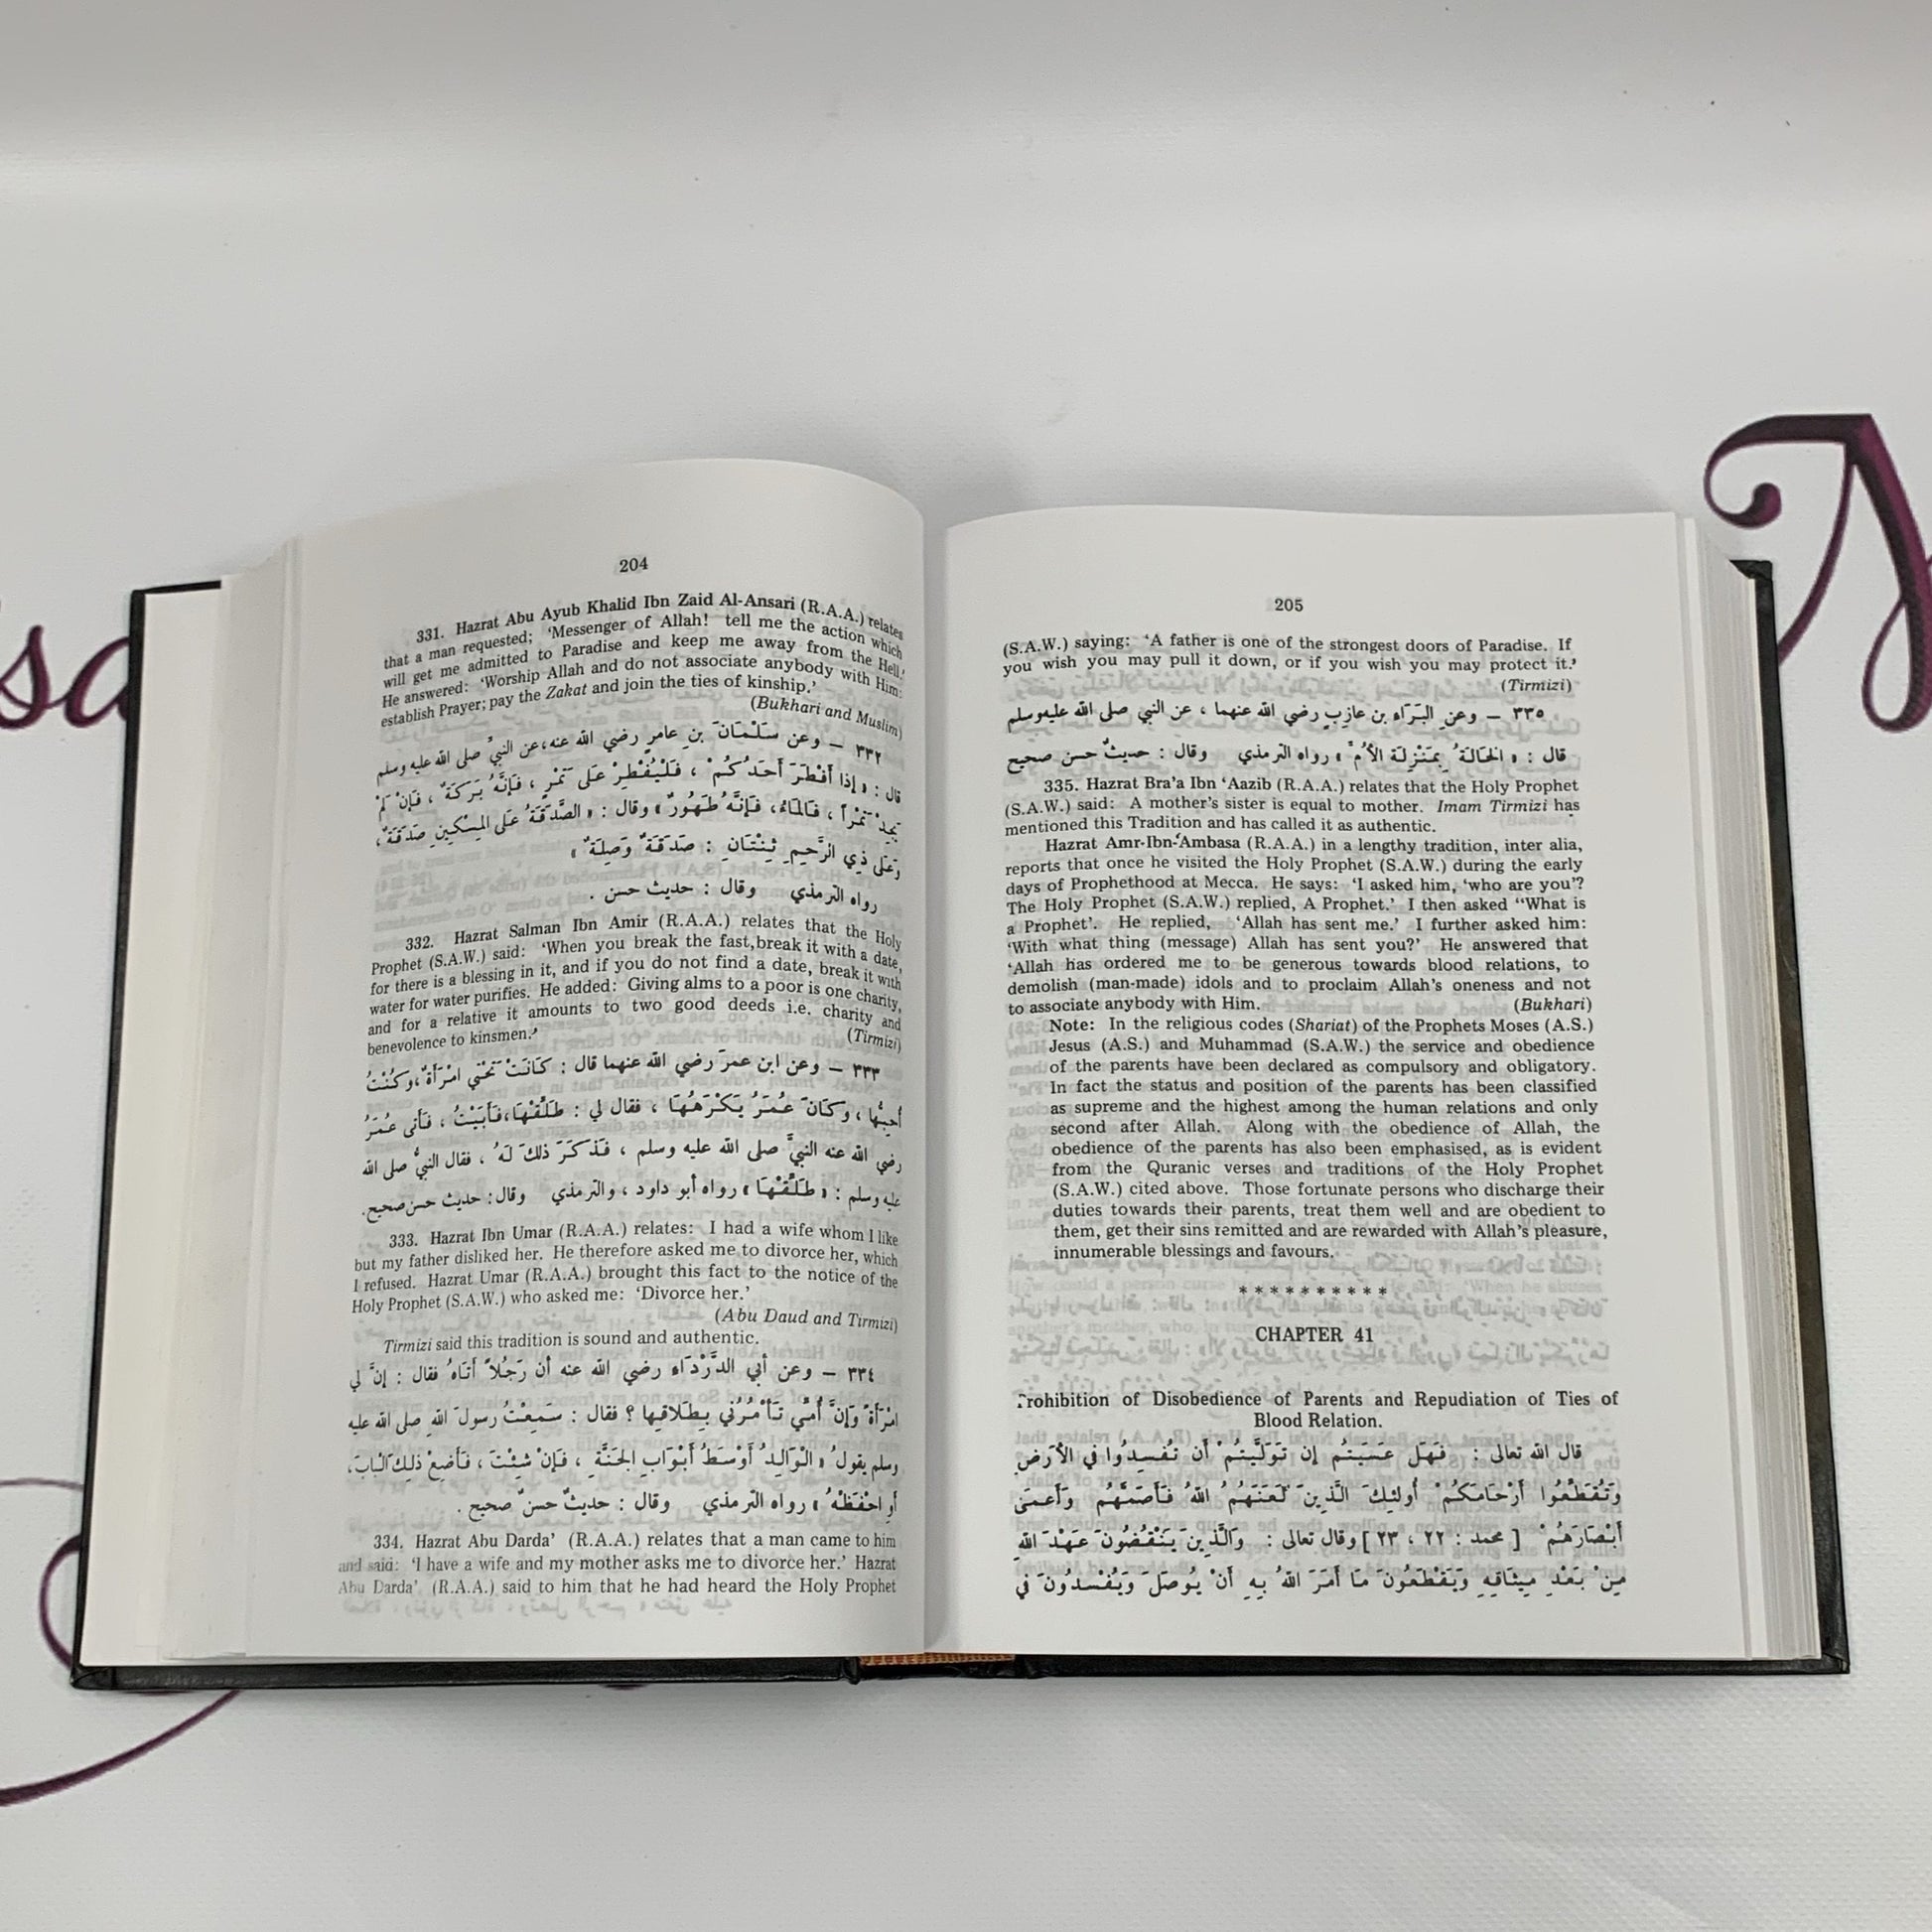 204
331. Hazrat Abu Ayub Khalid Ibn Zaid Al-Ansari (R.A.A.) relates
that a man requested; 'Messenger of Allah! tell me the action which
will get me admitted to Paradise and keep me away from the Hell.'
He answered: 'Worship Allah and do not associate anybody with Him:
establish Prayer; pay the Zakat and join the ties of kinship.'
(Bukhari and Muslim)
٣٣٢ – وعن سَلْمَانَ بنِ عامرٍ رضي الله عنه، عن النبيِّ صلى الله عليه وسلم
قال : « إذا أَفْطَرَ أَحَدُكُمْ ، فَلْيُفْطِرْ عَلى تَمْرٍ ، فَإنَّهُ بَرَكَةٌ ، فَإنْ لَمْ
يَجِدْ تَمْراً ، فَالمَاءُ، فَإنَّهُ طَهُورٌ » وقال : « الصَّدَقَةُ عَلى المِسْكِينِ صَدَقَةٌ،
وَعَلى ذي الرَّحِمِ ثِنْتَانِ : صَدَقَةٌ وَصِلَةٌ »
رواه الترمذي وقال : حديث حسن .
332. Hazrat Salman Ibn Amir (R.A.A.) relates that the Holy
Prophet (S.A.W.) said: 'When you break the fast,break it with a date,
for there is a blessing in it, and if you do not find a date, break it with
water for water purifies. He added: Giving alms to a poor is one charity,
and for a relative it amounts to two good deeds i.e. charity and
benevolence to kinsmen.'
(Tirmizi)
٣٣٣ – وعن ابن عمرَ رضي الله عنهما قال : كَانَتْ تَحْتي امْرَأَةٌ ،وكُنْتُ
أُحِبُّها ، وَكَانَ عُمَرُ يَكْرَهُهَا ، فقال لي : طَلِّقْهَا،فَأَبَيْتُ ، فَأَتى عُمَرُ
رضي الله عنه النبيَّ صلى الله عليه وسلم ، فَذَكَرَ ذلكَ لَهُ ، فقال النبيُّ صلى الله
عليه وسلم : « طَلِّقْهَا » رواه أبو داود ، والترمذي وقال : حديث حسن صحيح.
333. Hazrat Ibn Umar (R.A.A.) relates: I had a wife whom I like
but my father disliked her. He therefore asked me to divorce her, which
I refused. Hazrat Umar (R.A.A.) brought this fact to the notice of the
Holy Prophet (S.A.W.) who asked me: 'Divorce her.'
(Abu Daud and Tirmizi)
Tirmizi said this tradition is sound and authentic.
٣٣٤ – وعن أبي الدَّرْدَاءِ رضي الله عنه أن رَجُلاً أَتَاهُ فقال : إنَّ لي
امْرَأَةً وَإنَّ أُمِّي تَأْمُرُني بِطَلاقِها ؟ فقال : سَمِعْتُ رسولَ اللهِ صلى الله عليه
وسلم يقولُ « الْوَالِدُ أَوْسَطُ أَبْوَابِ الجَنَّةِ ، فَإنْ شِئْتَ ، فَأَضِعْ ذلِكَ الْبَابَ،
أَو احْفَظْهُ » رواه الترمذي وقال : حديثٌ حسنٌ صحيح .
334. Hazrat Abu Darda' (R.A.A.) relates that a man came to him
and said: 'I have a wife and my mother asks me to divorce her.' Hazrat
Abu Darda' (R.A.A.) said to him that he had heard the Holy Prophet
205
(S.A.W.) saying: 'A father is one of the strongest doors of Paradise. If
you wish you may pull it down, or if you wish you may protect it.'
(Tirmizi)
٣٣٥ – وعن البَرَاءِ بن عازِبٍ رضي الله عنهما ، عن النبي صلى الله عليه وسلم
قال : « الخَالَةُ بِمَنْزِلَة الأُمِّ » رواه الترمذي وقال : حديثٌ حسن صحيح
335. Hazrat Bra'a Ibn 'Aazib (R.A.A.) relates that the Holy Prophet
(S.A.W.) said: A mother's sister is equal to mother. Imam Tirmizi has
mentioned this Tradition and has called it as authentic.
Hazrat Amr-Ibn-'Ambasa (R.A.A.) in a lengthy tradition, inter alia,
reports that once he visited the Holy Prophet (S.A.W.) during the early
days of Prophethood at Mecca. He says: 'I asked him, 'who are you'?
The Holy Prophet (S.A.W.) replied, A Prophet.' I then asked "What is
a Prophet'. He replied, 'Allah has sent me.' I further asked him:
'With what thing (message) Allah has sent you?' He answered that
'Allah has ordered me to be generous towards blood relations, to
demolish (man-made) idols and to proclaim Allah's oneness and not
to associate anybody with Him. (Bukhari)
Note: In the religious codes (Shariat) of the Prophets Moses (A.S.)
Jesus (A.S.) and Muhammad (S.A.W.) the service and obedience
of the parents have been declared as compulsory and obligatory.
In fact the status and position of the parents has been classified
as supreme and the highest among the human relations and only
second after Allah. Along with the obedience of Allah, the
obedience of the parents has also been emphasised, as is evident
from the Quranic verses and traditions of the Holy Prophet
(S.A.W.) cited above. Those fortunate persons who discharge their
duties towards their parents, treat them well and are obedient to
them, get their sins remitted and are rewarded with Allah's pleasure,
innumerable blessings and favours.
**********
CHAPTER 41
Prohibition of Disobedience of Parents and Repudiation of Ties of
Blood Relation.
قال الله تعالى : فَهَل عَسَيتُم إن تَوَلَّيتُمْ أَن تُفسِدُوا في الأَرضِ
وَتُقَطِّعُوا أَرْحَامَكُمْ أُولئِكَ الَّذِينَ لَعَنَهُمُ اللهُ فَأَصَمَّهُم وَأَعمَى
أَبْصَارَهُمْ [ محمد : ٢٢ ، ٢٣ ] وقال تعالى : وَالَّذِينَ يَنْقُضُونَ عَهْدَ اللهِ
مِنْ بَعْدِ مِيثَاقِهِ وَيَقْطَعُونَ مَا أَمَرَ اللهُ بِهِ أَنْ يُوصَلَ وَيُفْسِدُونَ في